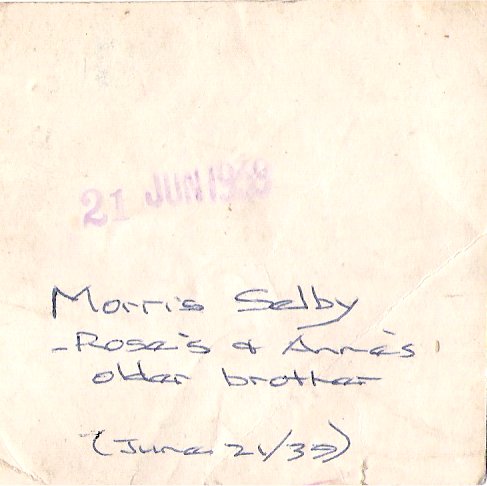 21 JUN
Morris Selby
- Rose's & Anne's
older brother
(June 21/39)